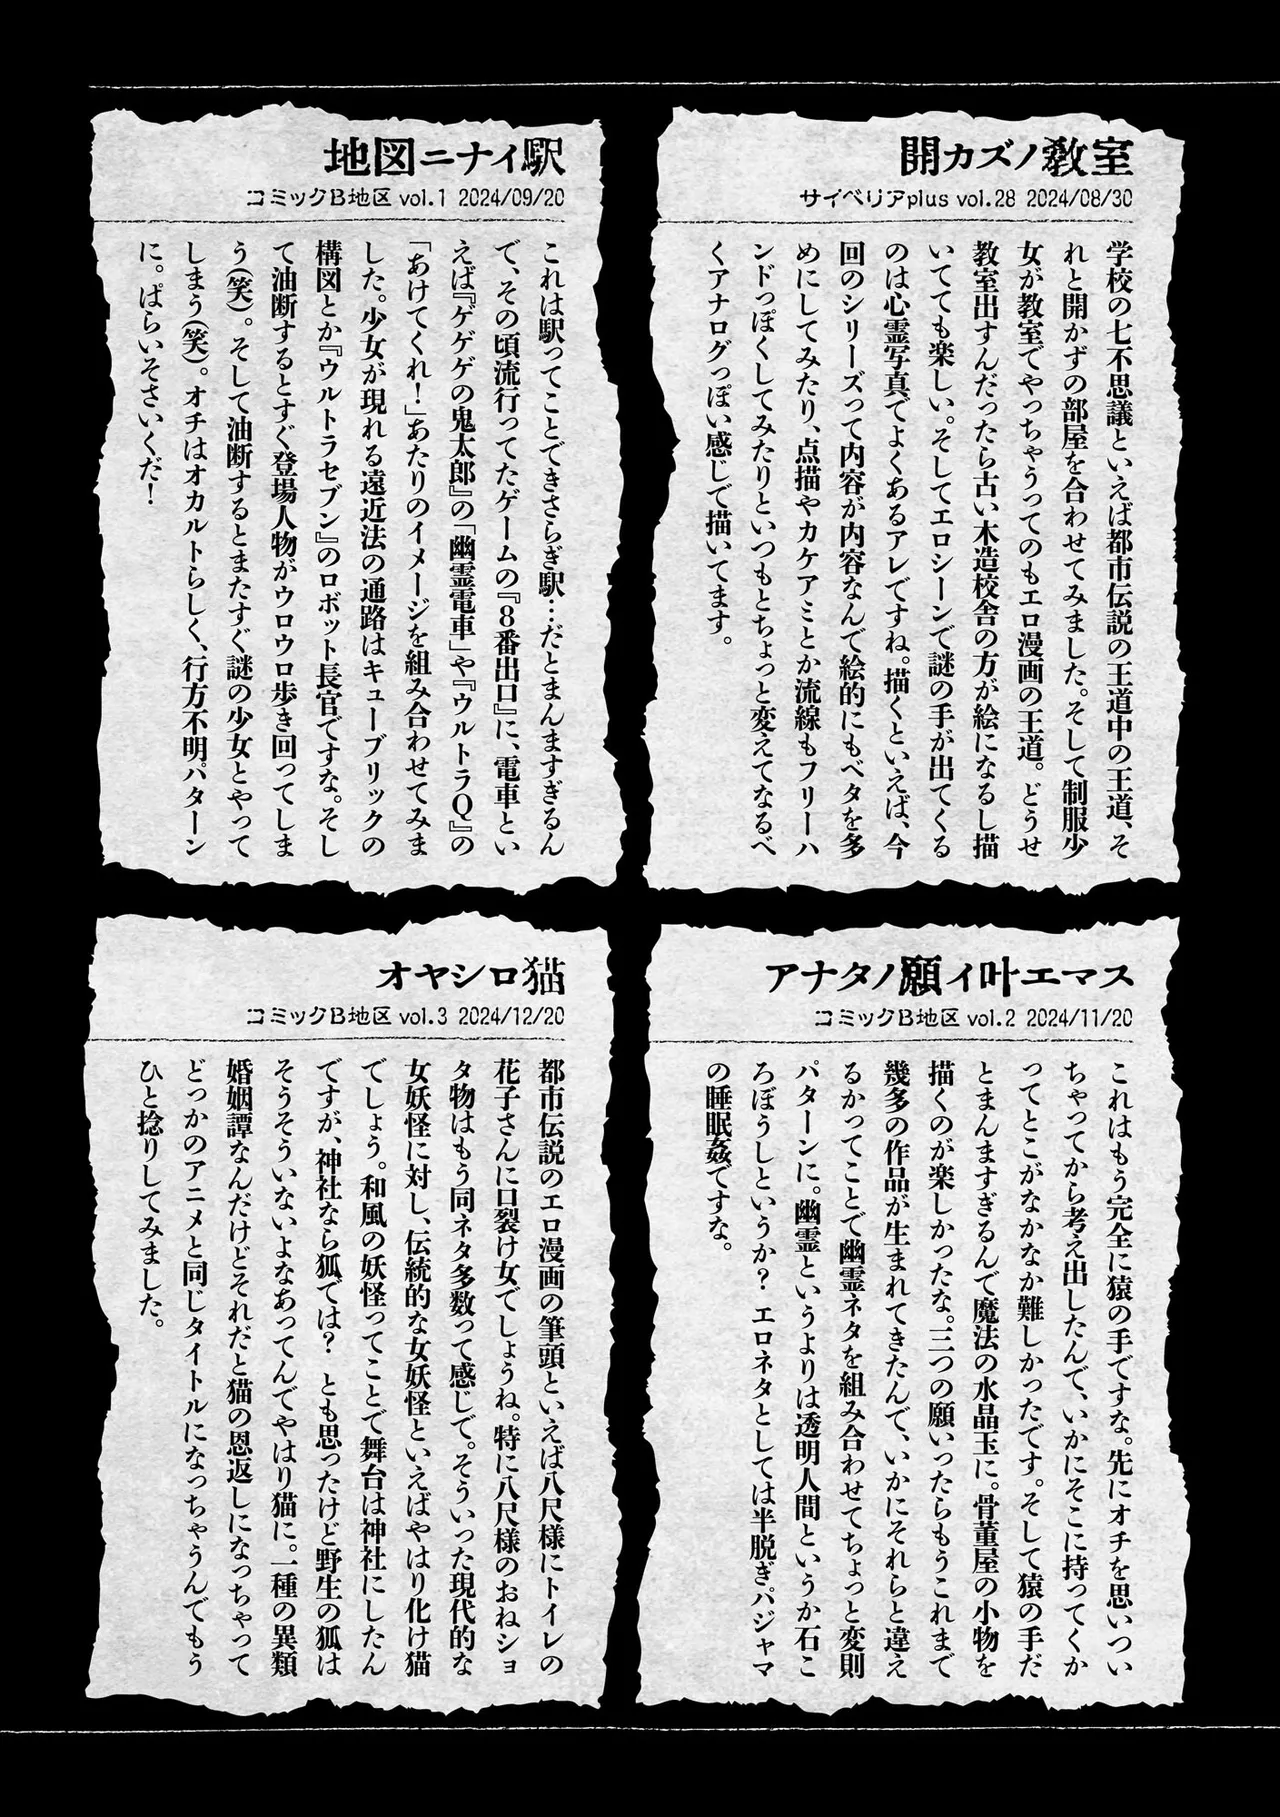 開カズノ教室
サイベリアplus vol.28 2024/08/30
学校の七不思議といえば都市伝説の王道中の王道、そ
れと開かずの部屋を合わせてみました。そして制服少
女が教室でやっちゃうってのもエロ漫画の王道。どうせ
教室出すんだったら古い木造校舎の方が絵になるし描
いてても楽しい。そしてエロシーンで謎の手が出てくる
のは心霊写真でよくあるアレですね。描くといえば、今
回のシリーズって内容が内容なんで絵的にもベタを多
めにしてみたり、点描やカケアミとか流線もフリーハ
ンドっぽくしてみたりといつもとちょっと変えてなるべ
くアナログっぽい感じで描いてます。
地図ニナイ駅
コミックB地区 vol.1 2024/09/20
これは駅ってことできさらぎ駅…だとまんますぎるん
で、その頃流行ってたゲームの『8番出口』に、電車とい
えば『ゲゲゲの鬼太郎』の「幽霊電車」や『ウルトラQ』の
「あけてくれ!」あたりのイメージを組み合わせてみま
した。少女が現れる遠近法の通路はキューブリックの
構図とか『ウルトラセブン』のロボット長官ですな。そし
て油断するとすぐ登場人物がウロウロ歩き回ってしま
う(笑)。そして油断するとまたすぐ謎の少女とやって
しまう(笑)。オチはオカルトらしく、行方不明パターン
に。ぱらいそさいくだ!
アナタノ願イ叶エマス
コミックB地区 vol.2 2024/11/20
これはもう完全に猿の手ですな。先にオチを思いつい
ちゃってから考え出したんで、いかにそこに持ってくか
ってとこがなかなか難しかったです。そして猿の手だ
とまんますぎるんで魔法の水晶玉に。骨董屋の小物を
描くのが楽しかったな。三つの願いったらもうこれまで
幾多の作品が生まれてきたんで、いかにそれらと違え
るかってことで幽霊ネタを組み合わせてちょっと変則
パターンに。幽霊というよりは透明人間というか石こ
ろぼうしというか? エロネタとしては半脱ぎパジャマ
の睡眠姦ですな。
オヤシロ猫
コミックB地区 vol.3 2024/12/20
都市伝説のエロ漫画の筆頭といえば八尺様にトイレの
花子さんに口裂け女でしょうね。特に八尺様のおねショ
タ物はもう同ネタ多数って感じで。そういった現代的な
女妖怪に対し、伝統的な女妖怪といえばやはり化け猫
でしょう。和風の妖怪ってことで舞台は神社にしたん
ですが、神社なら狐では? とも思ったけど野生の狐は
そうそういないよなあってんでやはり猫に。一種の異類
婚姻譚なんだけどそれだと猫の恩返しになっちゃって
どっかのアニメと同じタイトルになっちゃうんでもう
ひと捻りしてみました。